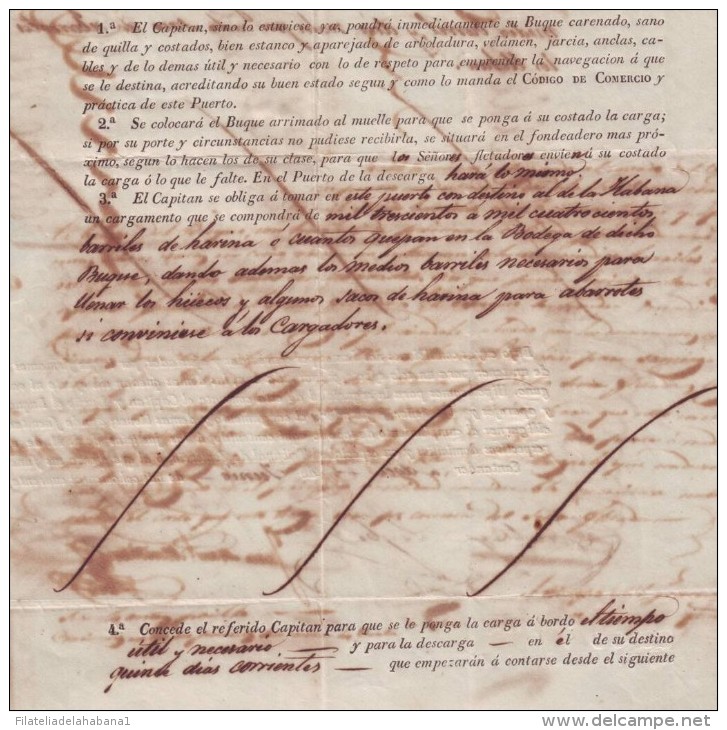 1.ª El Capitan, sino lo estuviese ya, pondrá inmediatamente su Buque carenado, sano
de quilla y costados, bien estanco y aparejado de arboladura, velamen, jarcia, anclas, ca-
bles y de lo demas útil y necesario con lo de respeto para emprender la navegacion á que
se le destina, acreditando su buen estado segun y como lo manda el CÓDIGO DE COMERCIO y
práctica de este Puerto.
2.ª Se colocará el Buque arrimado al muelle para que se ponga á su costado la carga;
si por su porte y circunstancias no pudiese recibirla, se situará en el fondeadero mas pró-
ximo, segun lo hacen los de su clase, para que los Señores fletadores envien á su costado
la carga ó lo que le falte. En el Puerto de la descarga hara lo mismo
3.ª El Capitan se obliga á tomar en este puerto con destino al de la Habana
un cargamento que se compondrá de mil trescientos a mil cuatrocientos,
barriles de harina ó cuantos quepan en la Bodega de dicho
Buque, dando ademas los medios barriles necesarios para
llenar los hüecos y algunos sacos de harina para abarrotes
si conviniese á los Cargadores.
4.ª Concede el referido Capitan para que se le ponga la carga á bordo el tiempo
útil y necesario — y para la descarga — en él de su destino
quince dias corrientes — que empezarán á contarse desde el siguiente
Filateliadelahabana1
www.delcampe.net